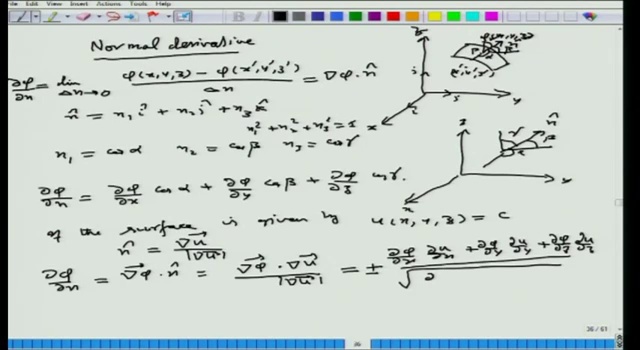 File Edit View Insert Actions Tools Help
Normal derivative
∂φ/∂n = lim Δn→0 φ(x,y,z) − φ(x',y',z') / Δn = ∇φ·n̂
n̂ = n₁î + n₂ĵ + n₃k̂
n₁² + n₂² + n₃² = 1
n₁ = cosα n₂ = cosβ n₃ = cosγ
∂φ/∂n = ∂φ/∂x cosα + ∂φ/∂y cosβ + ∂φ/∂z cosγ.
If the surface is given by u(x,y,z) = c
n̂ = ∇u/|∇u|
∂φ/∂n = ∇φ·n̂ = ∇φ·∇u/|∇u| = ± ∂φ/∂x ∂u/∂x + ∂φ/∂y ∂u/∂y + ∂φ/∂z ∂u/∂z / √
z
φ(x,y,z)
(x',y',z')
y
x
z
n̂
γ
β
α
y
x
36 / 61
36